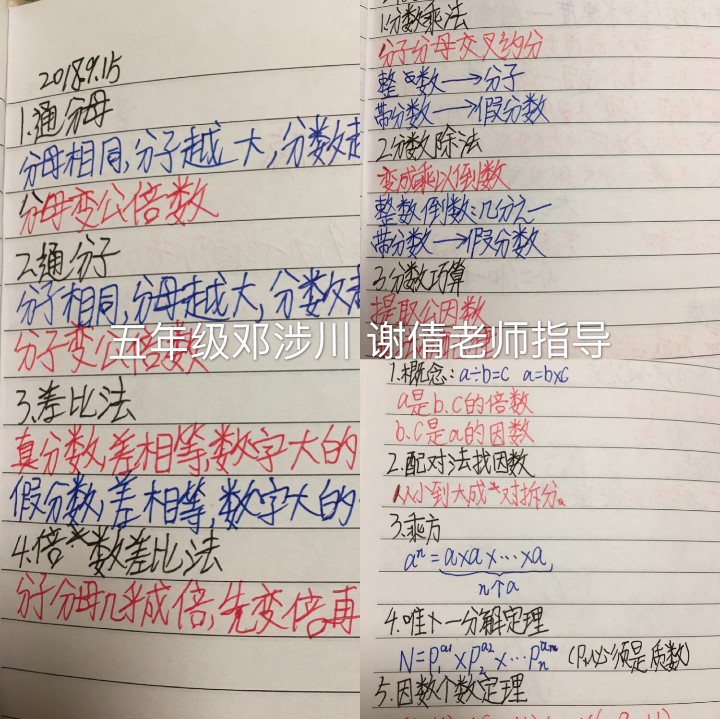 2018.9.15
1.通分母
分母相同,分子越大,分数越
分母变公倍数
2.通分子
分子相同,分母越大,分数越
分子变公倍数
3.差比法
真分数,差相等,数字大的
假分数,差相等,数字大的
4.倍数差比法
分子分母几乎成倍,先变倍再
1.分数乘法
分子分母交叉约分
整数→分子
带分数→假分数
2.分数除法
变成乘以倒数
整数倒数:几分之一
带分数→假分数
3.分数巧算
提取公因数
五年级邓涉川 谢倩老师指导
1.概念:a÷b=c a=b×c
a是b.c的倍数
b.c是a的因数
2.配对法找因数
从小到大成对拆分。
3.乘方
aⁿ=a×a×…×a
n个a
4.唯一分解定理
N=P₁^a1×P₂^a2×…Pₙ^an (P必须是质数)
5.因数个数定理